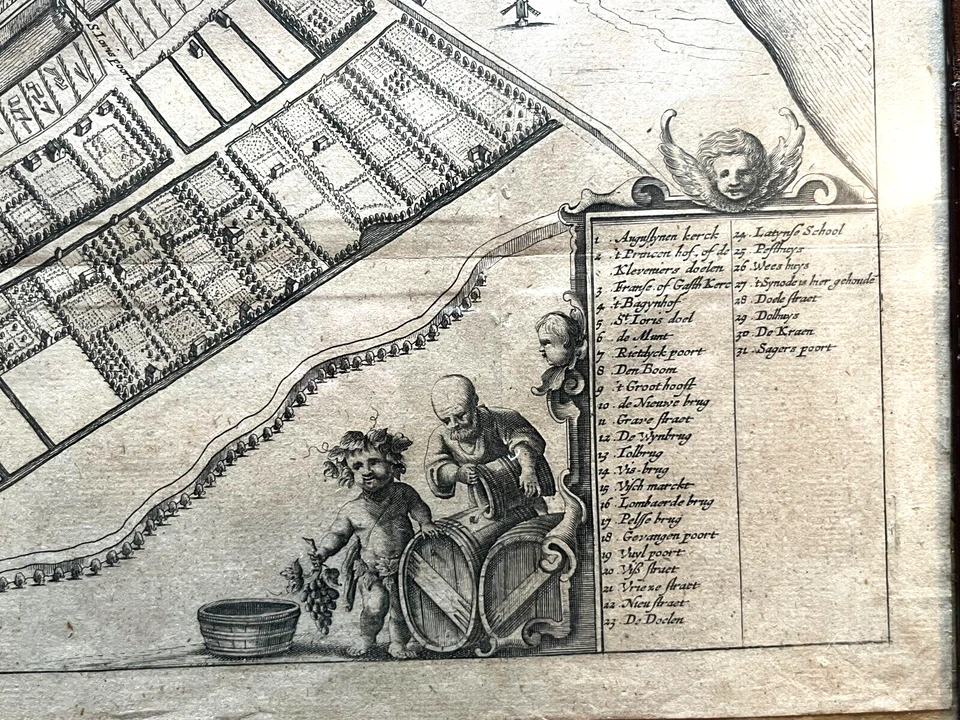 S. Loris poort
1 Augustynen kerck
2 't Princen hof. of de
Kleveniers doelen
3 Franse of Gasth Kerc
4 't Bagynhof
5 St. Ioris doel
6 de Munt
7 Rietdyck poort
8 Den Boom
9 't Groot hooft
10 de Nieuwe brug
11 Grave straet
12 De Wynbrug
13 Tolbrug
14 Vis-brug
15 Visch marckt
16 Lombaerde brug
17 Pelsse brug
18 Gevangen poort
19 Vuyl poort
20 Viß straet
21 Vrieze straet
22 Nieu straet
23 De Doelen
24 Latynse School
25 Pesthuys
26 Wees huys
27 't Synode is hier gehoude
28 Doele straet
29 Dolhuys
30 De Kraen
31 Sagers poort